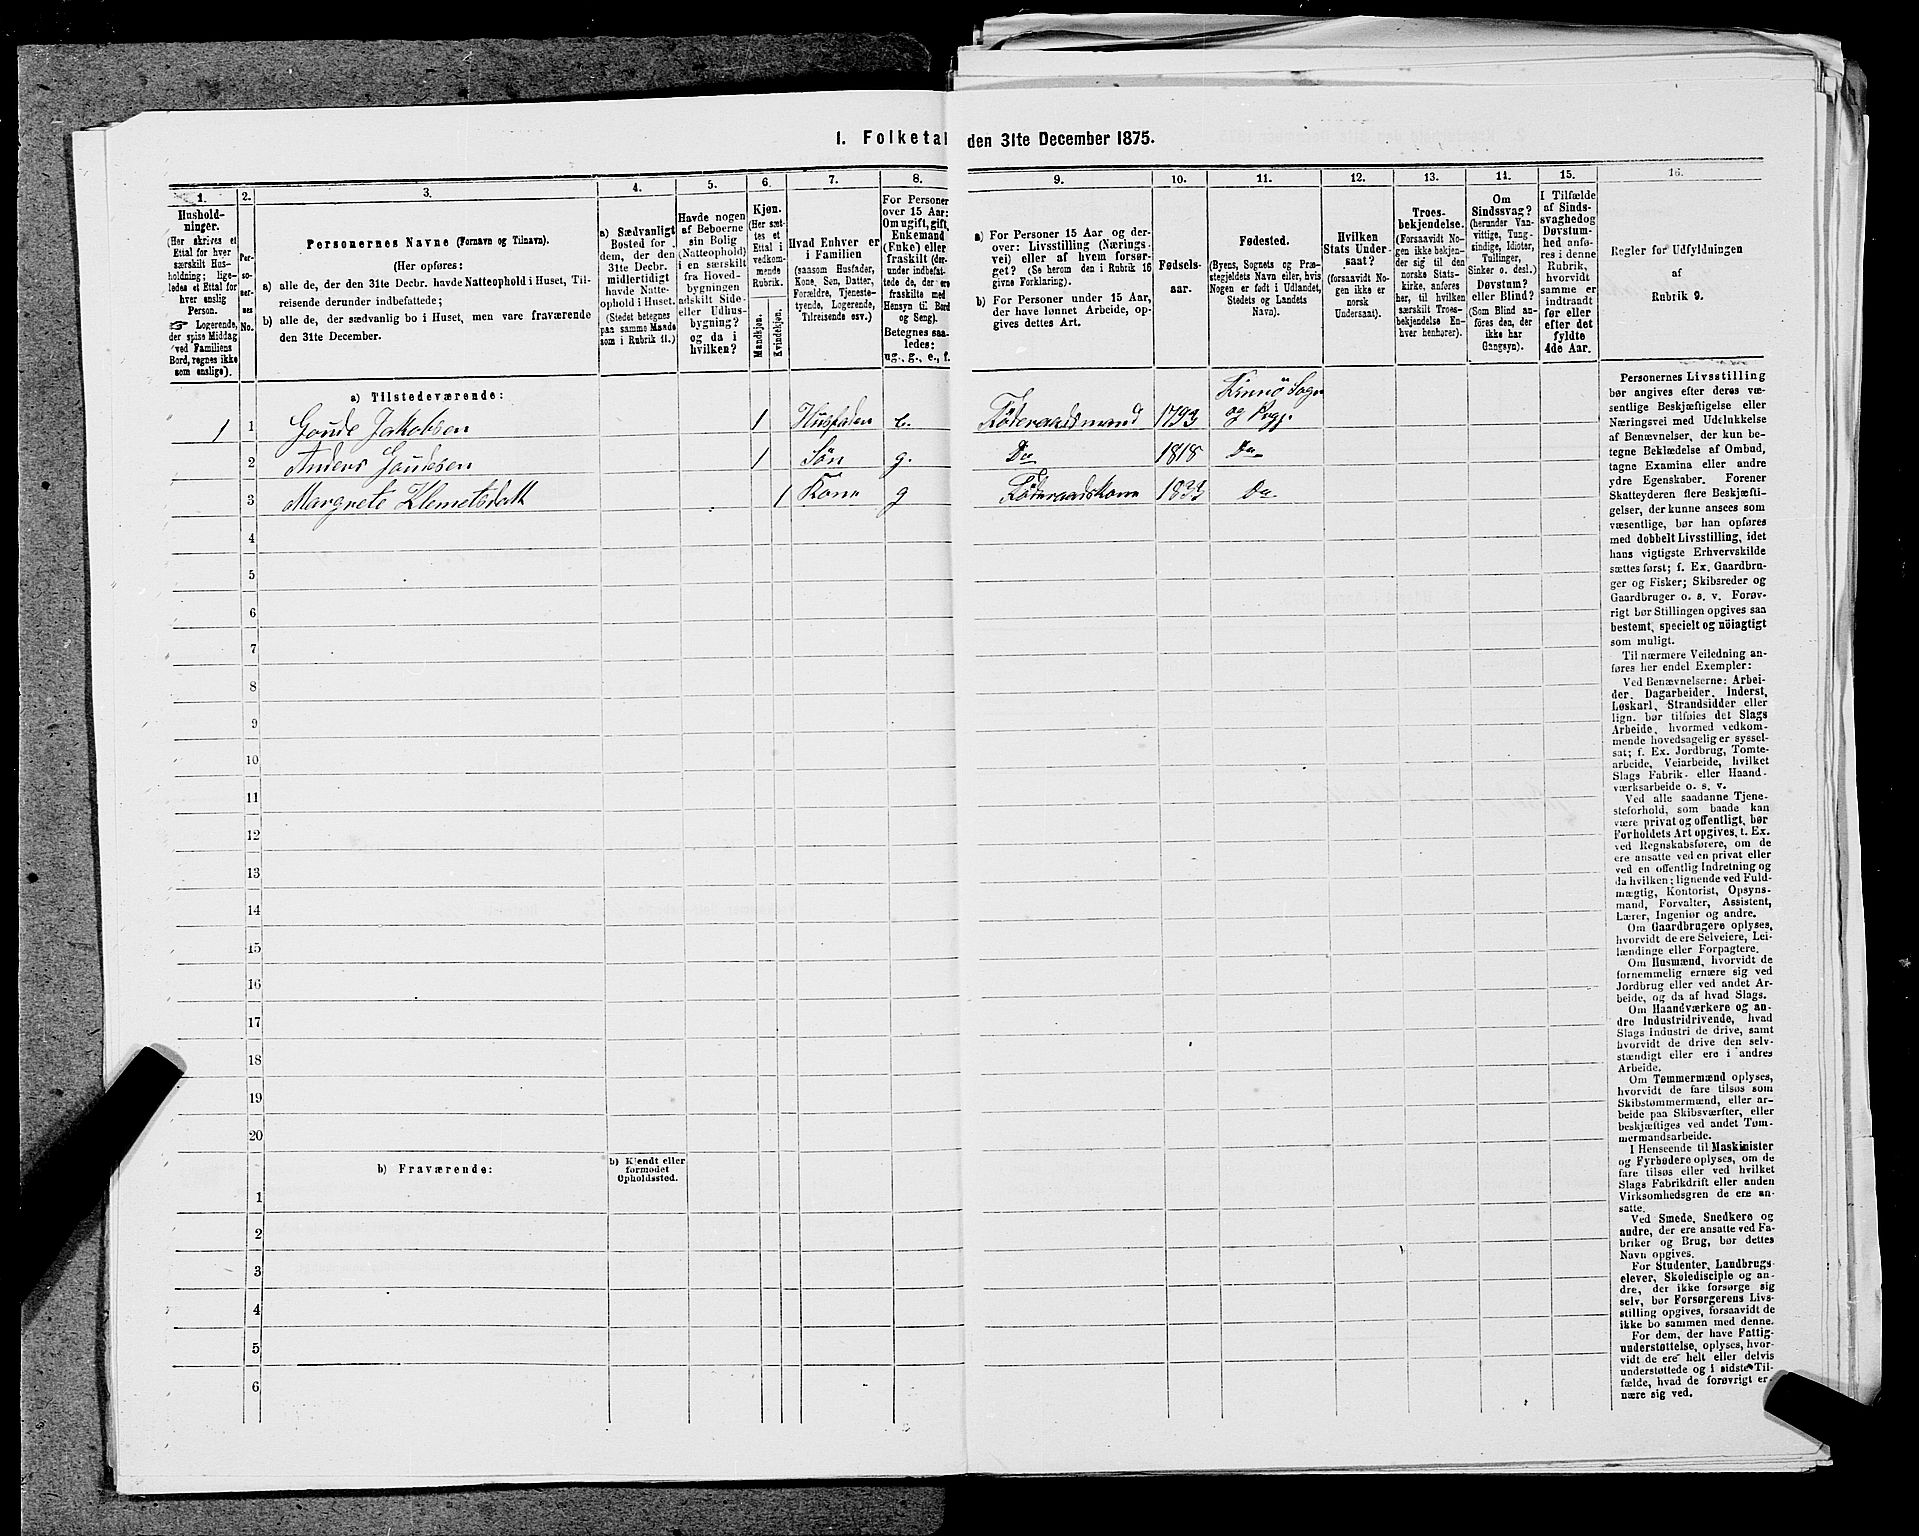 1. Folketal den 31te December 1875.
1. 2. 3. 4. 5. 6. 7. 8. 9. 10. 11. 12. 13. 14. 15. 16.
Hushold-
ninger.
(Her skrives et
Ettal for hver
særskilt Hus-
holdning; lige-
ledes et Ettal for
hver enslig
Person.
☞ Logerende,
der spise Middag
ved Familiens
Bord, regnes ikke
som enslige).
Per-
so-
ner-
nes
No.
Personernes Navne (Fornavn og Tilnavn).
(Her opføres:
a) alle de, der den 31te Decbr. havde Natteophold i Huset, Til-
reisende derunder indbefattede;
b) alle de, der sædvanlig bo i Huset, men vare fraværende
den 31te December.
a) Sædvanligt
Bosted for
dem, der den
31te Decbr.
midlertidigt
havde Natte-
ophold i Huset.
(Stedet betegnes
paa samme Maade
som i Rubrik 11.)
Havde nogen
af Beboerne
sin Bolig
(Natteophold)
i en særskilt
fra Hoved-
bygningen
adskilt Side-
eller Udhus-
bygning?
og da i
hvilken?
Kjøn.
(Her sæt-
tes et
Ettal i
vedkom-
mende
Rubrik.
Mandkjøn.
Kvindekjøn.
Hvad Enhver er
i Familien
(saasom Husfader,
Kone, Søn, Datter,
Forældre, Tjeneste-
tyende, Logerende,
Tilreisende osv.)
For Personer
over 15 Aar:
Om ugift, gift,
Enkemand
(Enke) eller
fraskilt (der-
under indbefat-
tede de, der ere
fraskilte med
Hensyn til Bord
og Seng).
Betegnes saa-
ledes:
ug., g., e., f.
a) For Personer 15 Aar og der-
over: Livsstilling (Nærings-
vei) eller af hvem forsør-
get? (Se herom den i Rubrik 16
givne Forklaring).
b) For Personer under 15 Aar,
der have lønnet Arbeide, op-
gives dettes Art.
Fødsels-
aar.
Fødested.
(Byens, Sognets og Præ-
stegjeldets Navn eller, hvis
Nogen er født i Udlandet,
Stedets og Landets
Navn).
Hvilken
Stats Under-
saat?
(forsaavidt No-
gen ikke er
norsk
Undersaat).
Troes-
bekjendelse.
(Forsaavidt No-
gen ikke bekjen-
der sig til den
norske Stats-
kirke, anføres
her, til hvilken
særskilt Troes-
bekjendelse En-
hver henhører).
Om
Sindssvag?
(herunder Van-
vittige, Tung-
sindige, Idioter,
Tullinger,
Sinker o. desl.)
Døvstum?
eller Blind?
(Som Blind an-
føres den, der
ikke har
Gangsyn).
I Tilfælde
af Sinds-
svaghed og
Døvstum-
hed anfø-
res i denne
Rubrik,
hvorvidt
samme er
indtraadt
før eller
efter det
fyldte
4de Aar.
Regler for Udfyldningen
af
Rubrik 9.
a) Tilstedeværende:
1 1 Goude Jakobsen 1 Husfader e. Föderaadsmand 1793 Kinnö Sogn og Prgj.
2 Anders Goudesen 1 Søn g. Do 1818 Do
3 Margrete Klemetsdatt 1 Kone g Föderaadskone 1833 Do
4
5
6
7
8
9
10
11
12
13
14
15
16
17
18
19
20
b) Fraværende:
b) Kjendt eller
formodet
Opholdssted.
1
2
3
4
5
6
Personernes Livsstilling
bør angives efter deres væ-
sentlige Beskjæftigelse eller
Næringsvei med Udelukkelse
af Benævnelser, der kun be-
tegne Beklædelse af Ombud,
tagne Examina eller andre
ydre Egenskaber. Forener
Skatteyderen flere Beskjæfti-
gelser, der kunne ansees som
væsentlige, bør han opføres
med dobbelt Livsstilling, idet
hans vigtigste Erhvervskilde
sættes først; f. Ex. Gaardbru-
ger og Fisker; Skibsreder og
Gaardbruger o. s. v. Forøv-
rigt bør Stillingen opgives saa
bestemt, specielt og nöiagtigt
som muligt.
Til nærmere Veiledning an-
føres her endel Exempler:
Ved Benævnelserne: Arbei-
der, Dagarbeider, Inderst,
Løskarl, Strandsidder eller
lign. bør tilføies det Slags
Arbeide, hvormed vedkom-
mende hovedsagelig er syssel-
sat; f. Ex. Jordbrug, Tomte-
arbeide, Veiarbeide, hvilket
Slags Fabrik- eller Haand-
værksarbeide o. s. v.
Ved alle saadanne Tjene-
steforhold, som baade kan
være privat og offentligt, bør
Forholdets Art opgives, t. Ex.
ved Regnskabsførere, om de
ere ansatte ved en privat eller
ved en offentlig Indretning og
da hvilken; lignende ved Fuld-
mægtig, Kontorist, Opsyns-
mand, Forvalter, Assistent,
Lærer, Ingeniør og andre.
Om Gaardbrugere oplyses,
hvorvidt de ere Selveiere, Lei-
lændinge eller Forpagtere.
Om Husmænd, hvorvidt de
fornemmelig ernære sig ved
Jordbrug eller ved andet Ar-
beide, og da af hvad Slags.
Om Haandværkere og an-
dre Industridrivende, hvad
Slags Industri de drive, samt
hvorvidt de drive den selv-
stændigt eller ere i andres
Arbeide.
Om Tømmermænd oplyses,
hvorvidt de fare tilsøs som
Skibstømmermænd, eller ar-
beide paa Skibsværfter, eller
beskjæftiges ved andet Tøm-
mermandsarbeide.
I Henseende til Maskinister
og Fyrbødere oplyses, om de
fare tilsøs eller ved hvilket
Slags Fabrikdrift eller anden
Virksomhedsgren de ere an-
satte.
Ved Smede, Snedkere og
andre, der ere ansatte ved Fa-
briker og Brug, bør dettes
Navn opgives.
For Studenter, Landbrugs-
elever, Skoledisciple og an-
dre, der ikke forsørge sig
selv, bør Forsørgerens Livs-
stilling opgives, forsaavidt de
ikke bo sammen med denne.
For dem, der have Fattig-
understøttelse, oplyses, hvor-
vidt de ere helt eller delvis
understøttede og i sidste Til-
fælde, hvad de forøvrigt er-
nære sig ved.